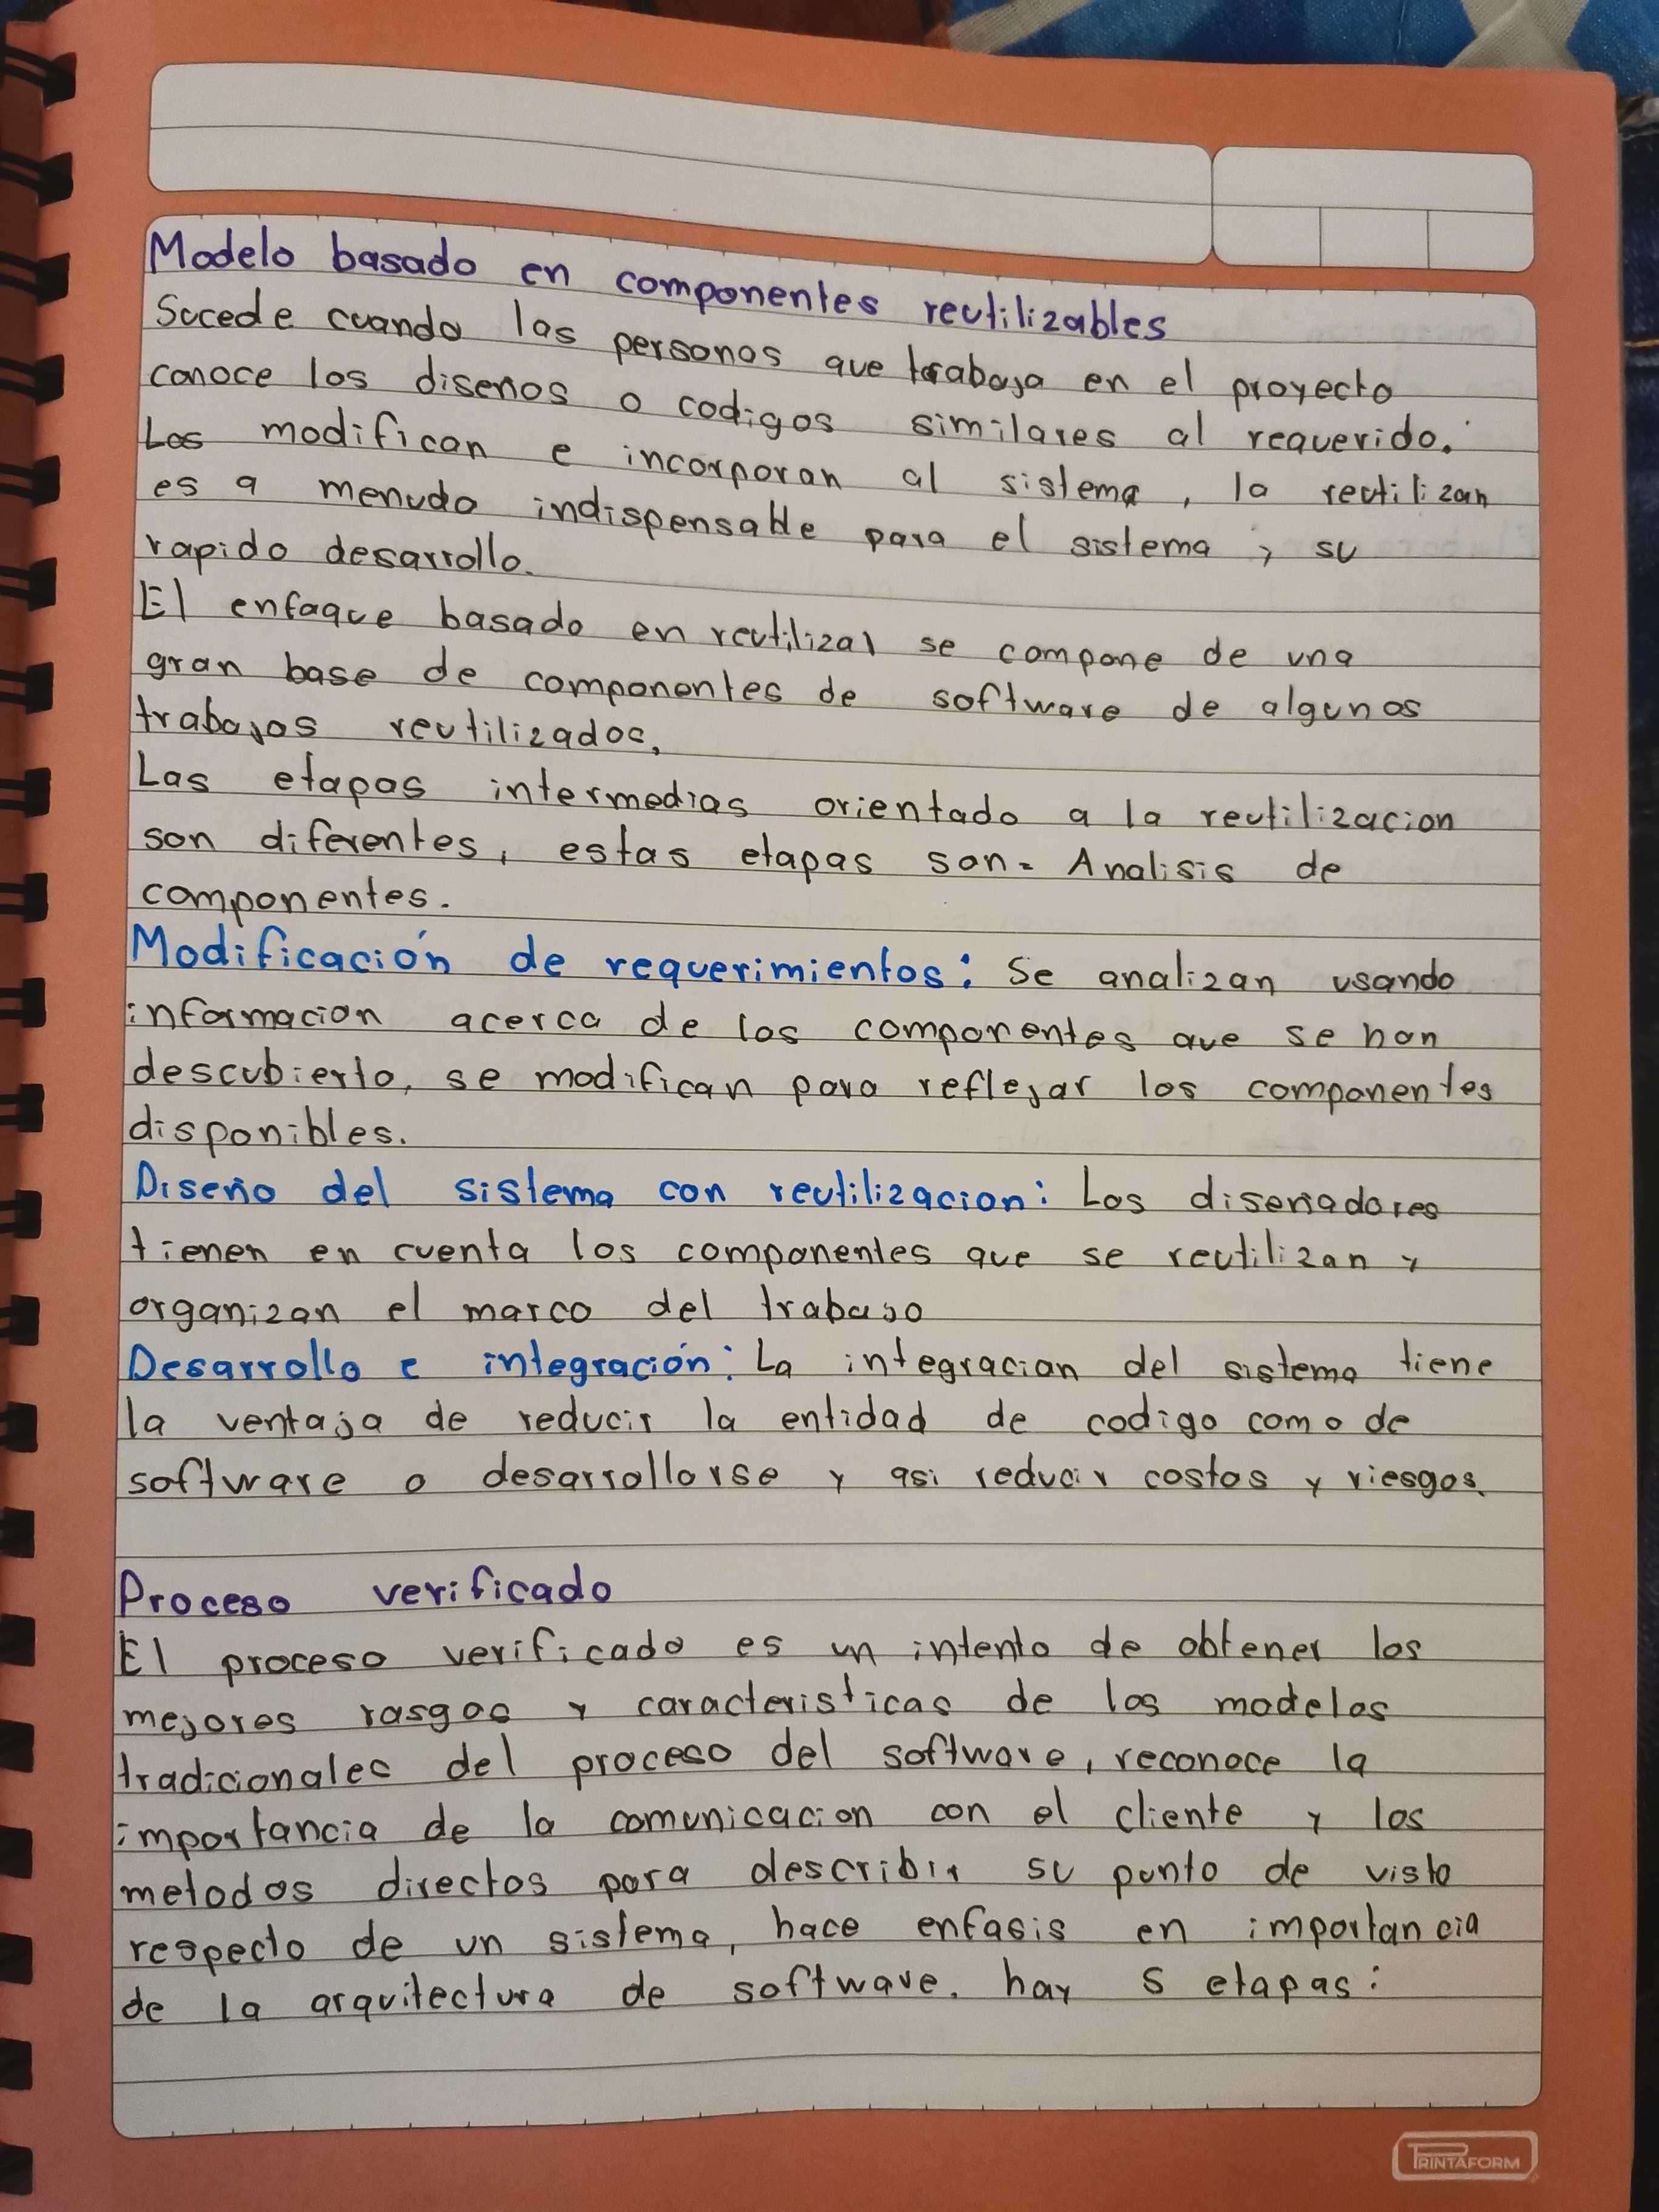 Modelo basado en componentes reutilizables
Sucede cuando las personas que trabaja en el proyecto
conoce los diseños o codigos similares al requerido.
Los modifican e incorporan al sistema, la reutilizan
es a menudo indispensable para el sistema y su
rapido desarrollo.
El enfaque basado en reutilizar se compone de una
gran base de componentes de software de algunos
trabajos reutilizados,
Las etapas intermedias orientado a la reutilizacion
son diferentes, estas etapas son= Analisis de
componentes.
Modificación de requerimientos: Se analizan usando
informacion acerca de los componentes que se han
descubierto, se modifican para reflejar los componentes
disponibles.
Diseño del sistema con reutilizacion: Los diseñadores
tienen en cuenta los componentes que se reutilizan y
organizan el marco del trabajo
Desarrollo e integración: La integracian del sistema tiene
la ventaja de reducir la entidad de codigo como de
software o desarrollarse y asi reducir costos y riesgos.
Proceso verificado
El proceso verificado es un intento de obtener los
mejores rasgos y caracteristicas de los modelos
tradicionales del proceso del software, reconoce la
importancia de la comunicacion con el cliente y los
metodos directos para describir su punto de vista
respecto de un sistema, hace enfasis en importancia
de la arquitectura de software. hay 5 etapas:
PRINTAFORM